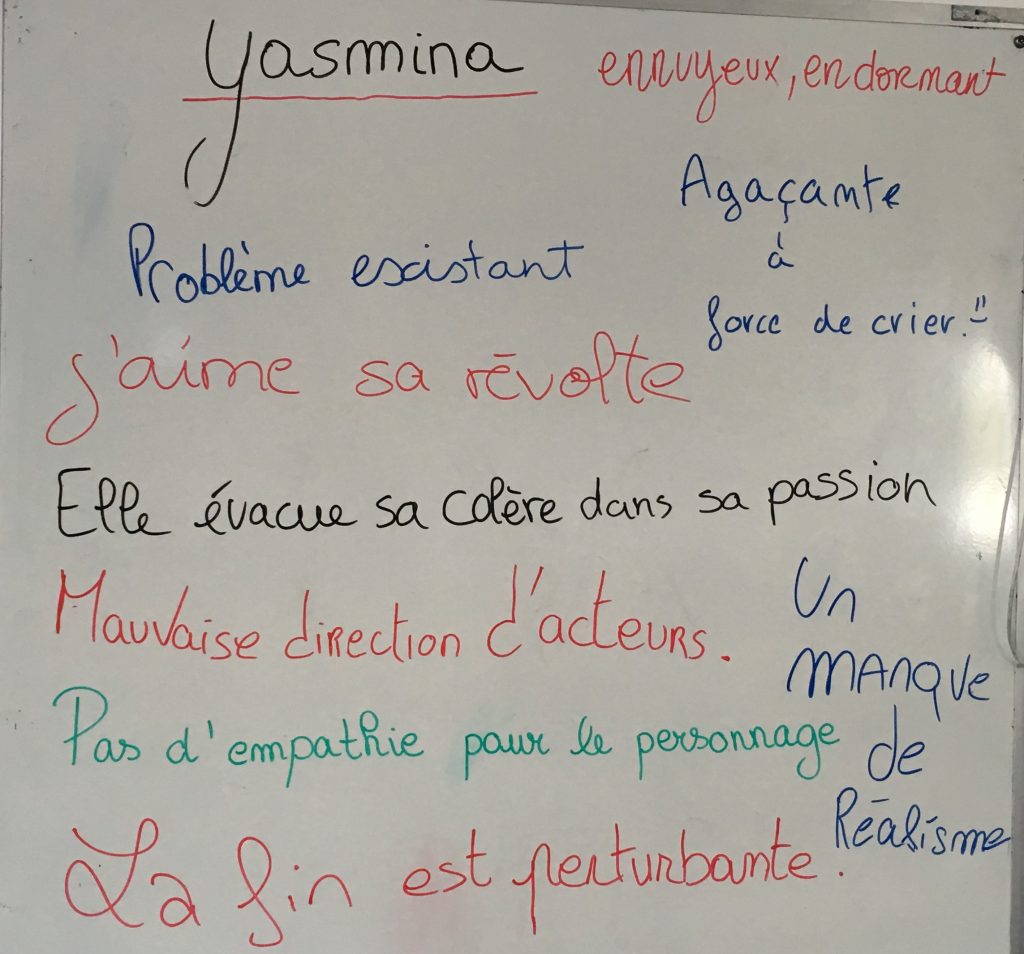 Yasmina
ennuyeux, endormant
Agaçante
à
force de crier."
Problème existant
j'aime sa révolte
Elle évacue sa colère dans sa passion
Mauvaise direction d'acteurs.
Un
manque
de
Réalisme
Pas d'empathie pour le personnage
La fin est perturbante.